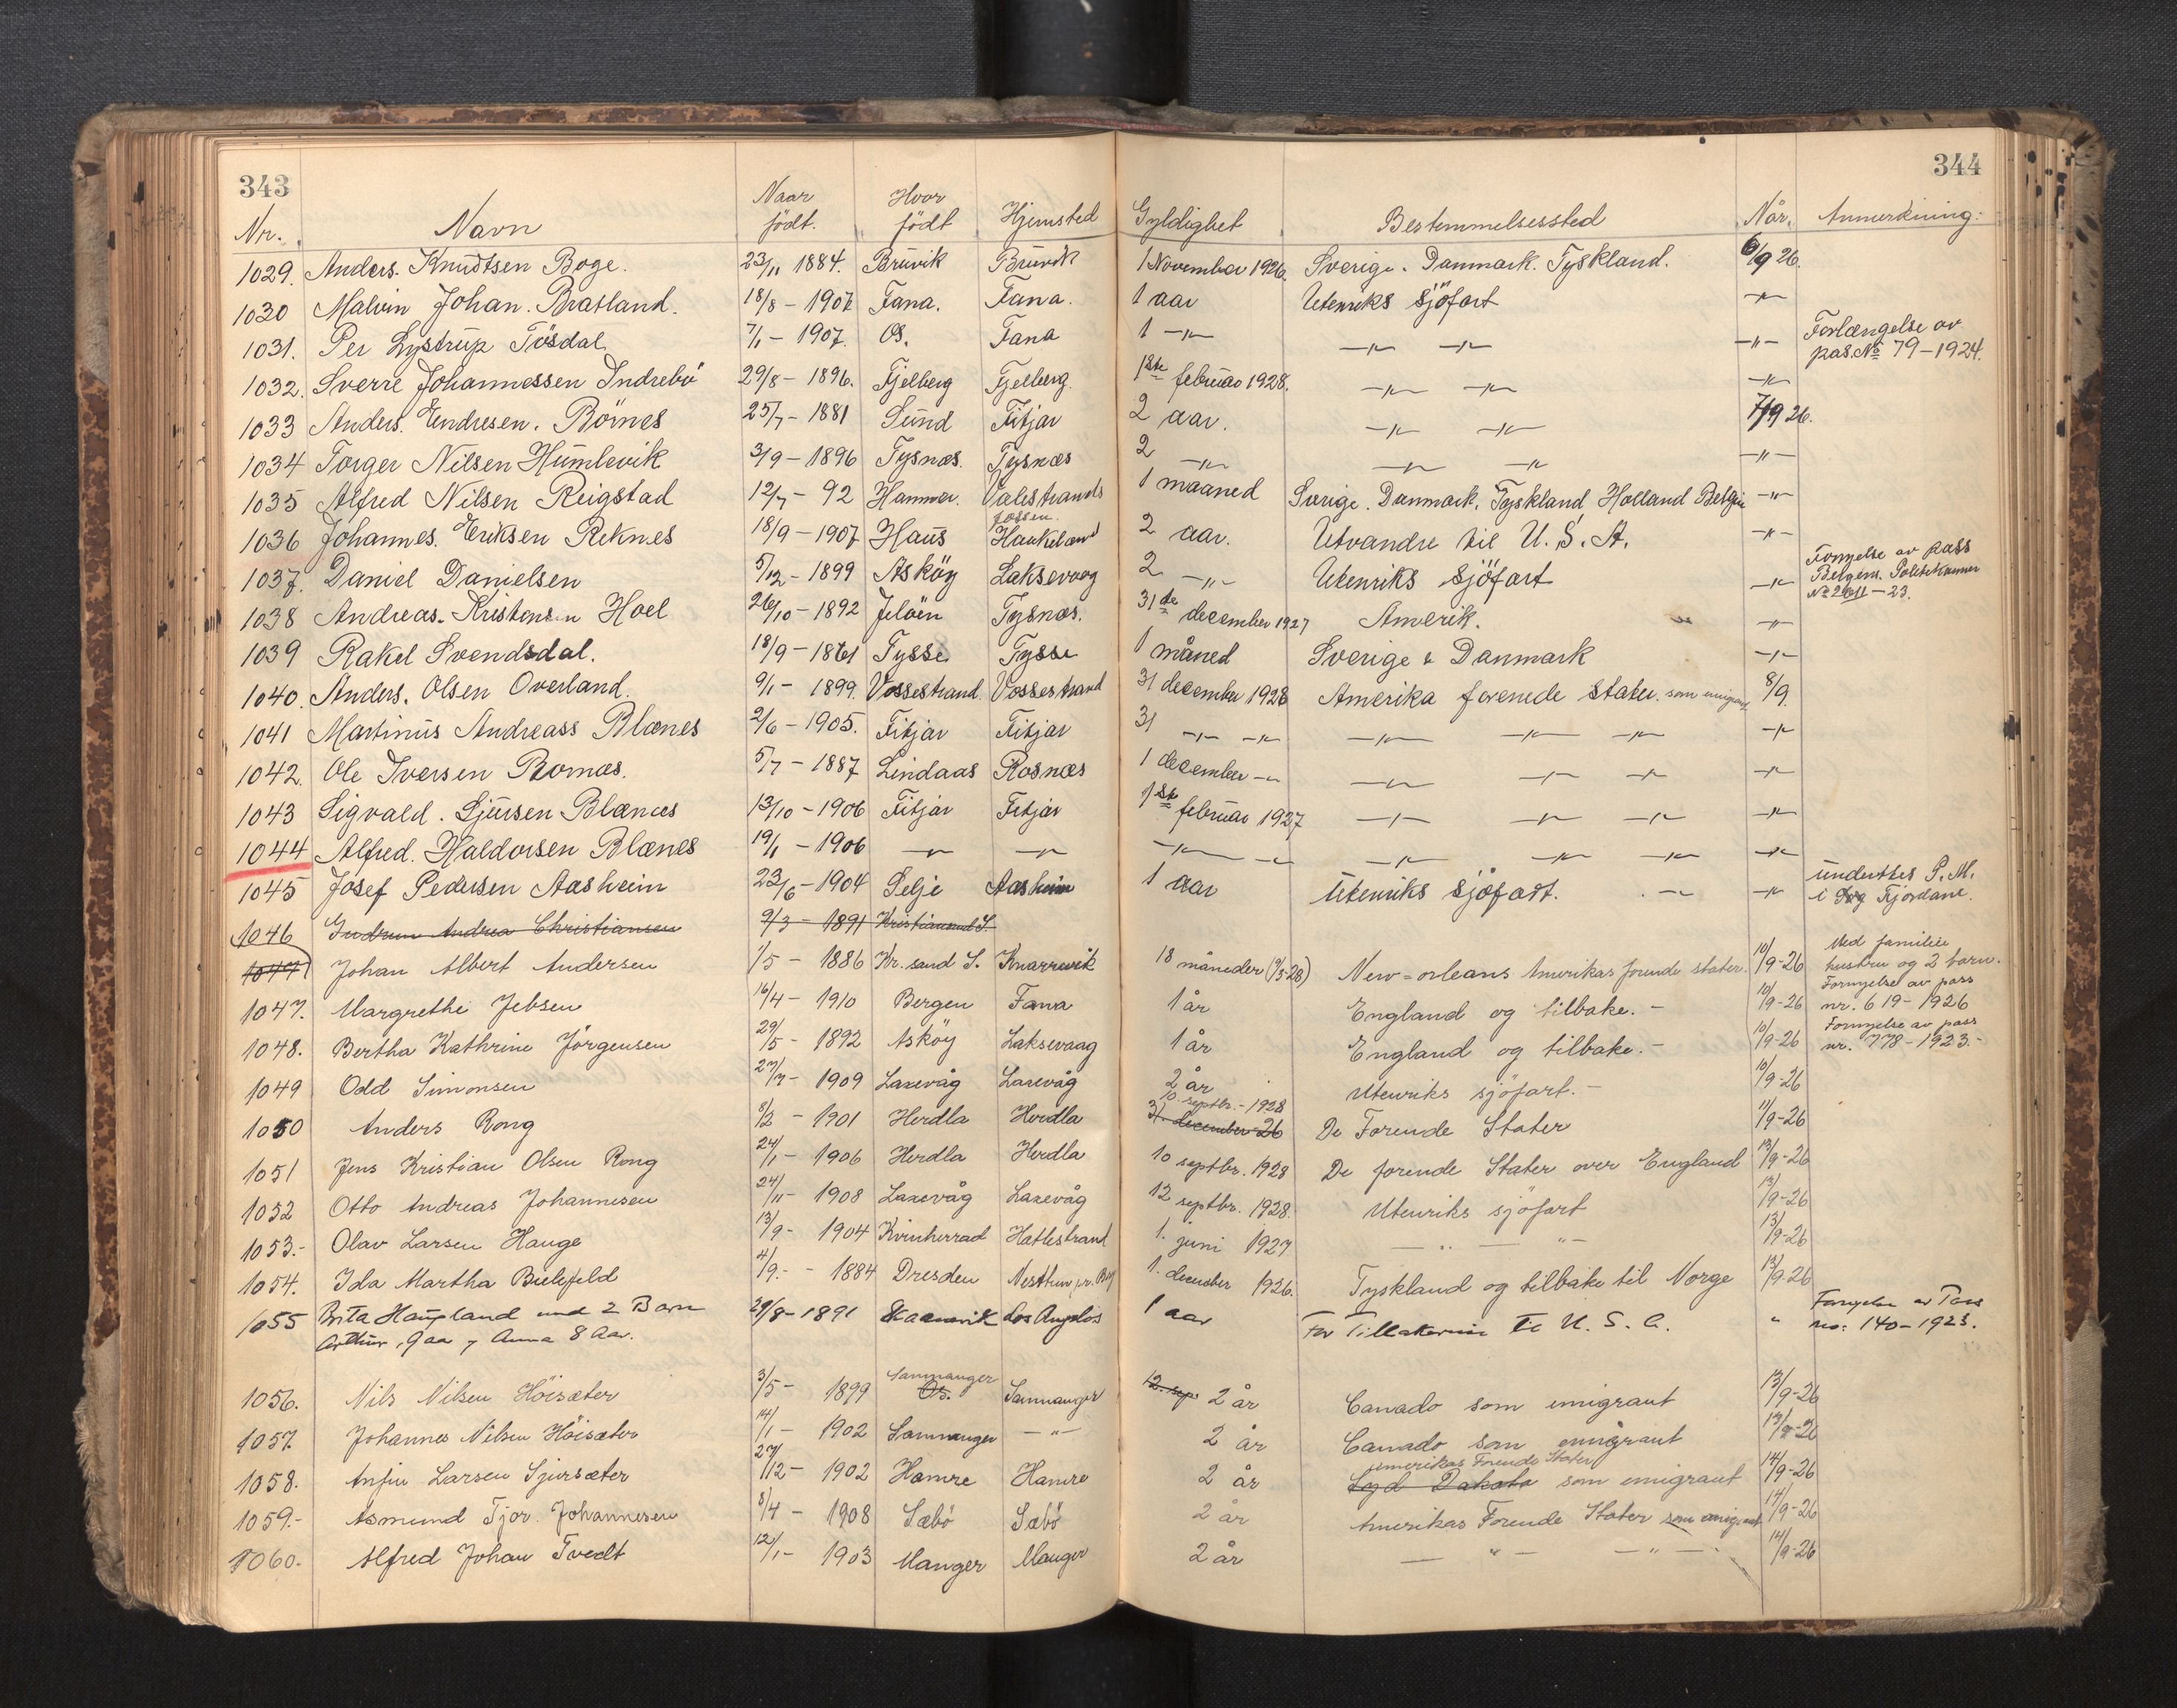 343
344
Nr. Navn Naar födt. Hvor födt Hjemsted Gyldighet Bestemmelsessted Når. Anmerkning:
1029. Anders Knudtsen Boge. 23/11 1884. Bruvik Bruvik 1 November 1926. Sverige. Danmark. Tyskland. 6/9 26.
1030 Malvin Johan. Bratland. 18/8 - 1907 Fana. Fana. 1 aar Utenriks sjöfart -"-
1031. Per Lystrup Tösdal 7/1 - 1907. Os. Fana 1 -"- -"- -"- -"- Forlængelse av
pas. No 79 - 1924.
1032. Sverre Johannessen Indrebö 29/8 - 1896. Fjelberg Fjelberg. 1ste februar 1928. -"- -"- -"-
1033 Anders. Endresen. Börnes 25/7 - 1881 Sund Fitjar 2 aar. -"- -"- 7/9 26.
1034 Torger Nilsen Humlevik 3/9 - 1896 Tysnæs. Tysnæs 2 -"- -"- -"- -"-
1035 Alfred Nilsen Reigstad 12/7 - 92 Hammer. Valestrands 1 maaned Sverige. Danmark. Tyskland Holland Belgie -"-
fossen.
1036 Johannes. Eriksen Reknes 18/9 - 1907 Haus Haukeland 2 aar. Utvandre til U. S. A. -"-
1037. Daniel Danielsen 5/12 - 1899 Asköy Laksevaag 2 -"- Utenriks sjöfart -"- Fornyelse av pass
Bergens. Politikammer
No 2611 - 23.
1038 Andreas. Kristensen Hoel 26/10 - 1892 Jelöen Tysnæs. 31de december 1927 Amerik. -"-
1039 Rakel Svendsdal. 18/9 - 1861 Tysse Tysse 1 måned Sverige & Danmark -"-
1040. Anders. Olsen Overland. 9/1 - 1899. Vossestrand Vossestrand 31 december 1928 Amerika forenede stater. som emigrant 8/9.
1041 Martinus Andreass Blænes 2/6 - 1905. Fitjar Fitjar 31 -"- -"- -"- -"- -"- -"-
1042. Ole Iversen Bornæs. 5/7 - 1887 Lindaas Rosnæs 1 december -"- -"- -"- -"- -"-
1043 Sigvald. Sjursen Blænæs 13/10 - 1906 Fitjar Fitjar 1ste februar 1927 -"- -"- -"- -"-
1044 Alfred. Haldorsen Blænes 19/1 - 1906 -"- -"- -"- -"- -"- -"- -"- -"-
1045 Josef Pedersen Aasheim 23/6 - 1904 Selje Aasheim 1 aar Utenriks sjöfart. -"- underttes P. M.
i Sog Fjordane.
1046 Gudrun Andrea Christiansen 9/3 - 1891 Kristiansand S.
1047 Johan Albert Andersen 1/5 - 1886 Kr. sand S. Knarrevik 18 måneder (1/3-28) New-orleans Amerikas forende stater. 10/9-26 Med familie
hustru og 2 barn.
1047. Margrethe Jebsen 16/4 - 1910 Bergen Fana 1 år England og tilbake. - 10/9-26 Fornyelse av pass
nr. 619 - 1926
1048. Bertha Kathrine Jörgensen 29/5 - 1892 Asköy Laksevaag 1 år England og tilbake. - 10/9-26 Fornyelse av pass
nr. 778 - 1923. -
1049 Odd Simonsen 27/7 - 1909 Laxevåg Laxevåg 2 år Utenriks sjöfart. - 10/9-26
10. septbr. - 1928
1050 Anders Rong 8/2 - 1901 Herdla Herdla 31. december 26 De Forende Stater 11/9-26
1051 Jens Kristian Olsen Rong 24/1 - 1906 Herdla Herdla 10 septbr. 1928 De forende Stater over England 13/9-26
1052 Otto Andreas Johannesen 24/11 - 1908 Laxevåg Laxevåg 12 septbr. 1928. Utenriks sjöfart 13/9-26
1053.- Olav Larsen Hauge 13/9 - 1904 Kvinherrad Hatlestrand 1. juni 1927 - " - " - 13/9-26
1054. Ida Martha Bielefeld 4/9. - 1884 Dresden Nesttun pr. Bg 1. december 1926. Tyskland og tilbake til Norge 13/9-26
1055 Brita Haugland med 2 Barn 29/8 - 1891 Skaanevik Los Angelos 1 aar For Tillakereise til U. S. A. " Fornyelse av Pass
Arthur, 9 aa y Anna 8 Aar. no: 140 - 1923.
1056. Nils Nilsen Höisæter 3/5 - 1899 Samnanger Os. Samnanger 12. sep. 2 år Canada som emigrant 13/9-26
1057. Johannes Nilsen Höisæter 14/1 - 1902 Samnanger - " - 2 år Canada som emigrant 13/9-26
Amerikas Forende Stater
1058. Anfin Larsen Sjursæter 27/12 - 1902 Hamre Hamre 2 år Syd Dakota som emigrant 14/9-26
1059.- Asmund Tjor. Johannesen 8/4 - 1908 Sæbö Sæbö 2 år Amerikas Forende Stater som emigrant 14/9-26
1060. Alfred Johan Tvedt 12/1 - 1903 Manger Manger 2 år - " - - " - 14/9-26